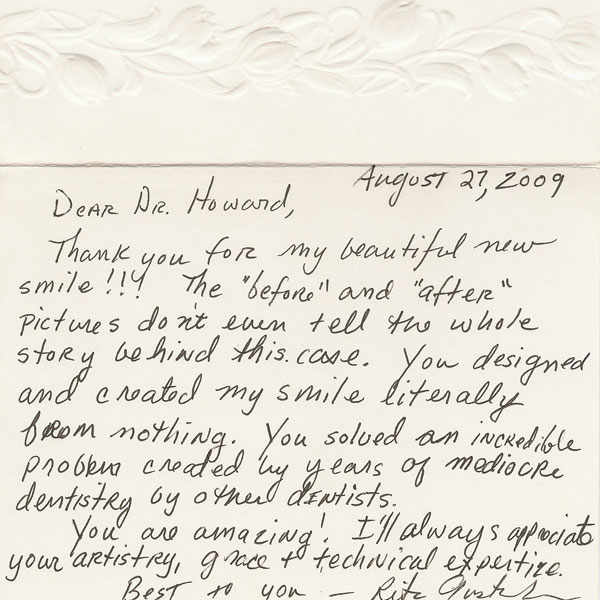 August 27, 2009
Dear Dr. Howard,
Thank you for my beautiful new
smile!!! The "before" and "after"
pictures don't even tell the whole
story behind this case. You designed
and created my smile literally
from nothing. You solved an incredible
problem created by years of mediocre
dentistry by other dentists.
You are amazing! I'll always appreciate
your artistry, grace + technical expertize.
Best to you — Rita